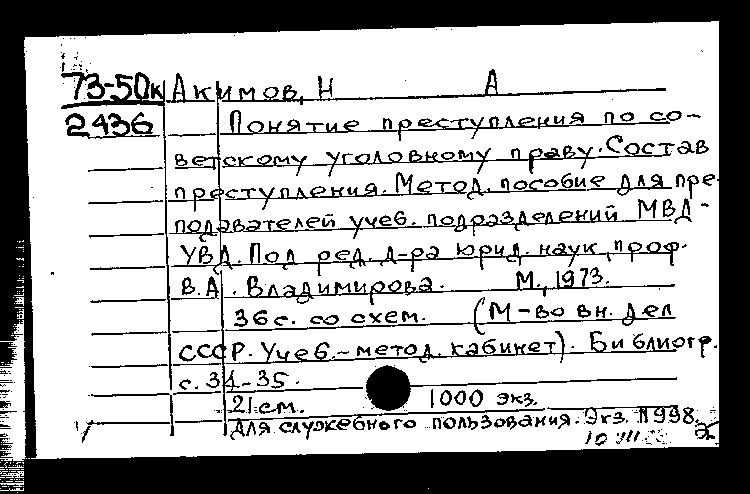 73-50к Акимов, Н А
2436 Понятие преступления по со-
ветскому уголовному праву. Состав
преступления. Метод. пособие для пре-
подавателей учеб. подразделений МВД-
УВД. Под ред. д-ра юрид. наук, проф.
В.А. Владимирова. М., 1973.
36 с. со схем. (М-во вн. дел
СССР. Учеб.-метод. кабинет). Библиогр.
с. 34-35.
21 см. 1000 экз.
Для служебного пользования. Экз. №998.